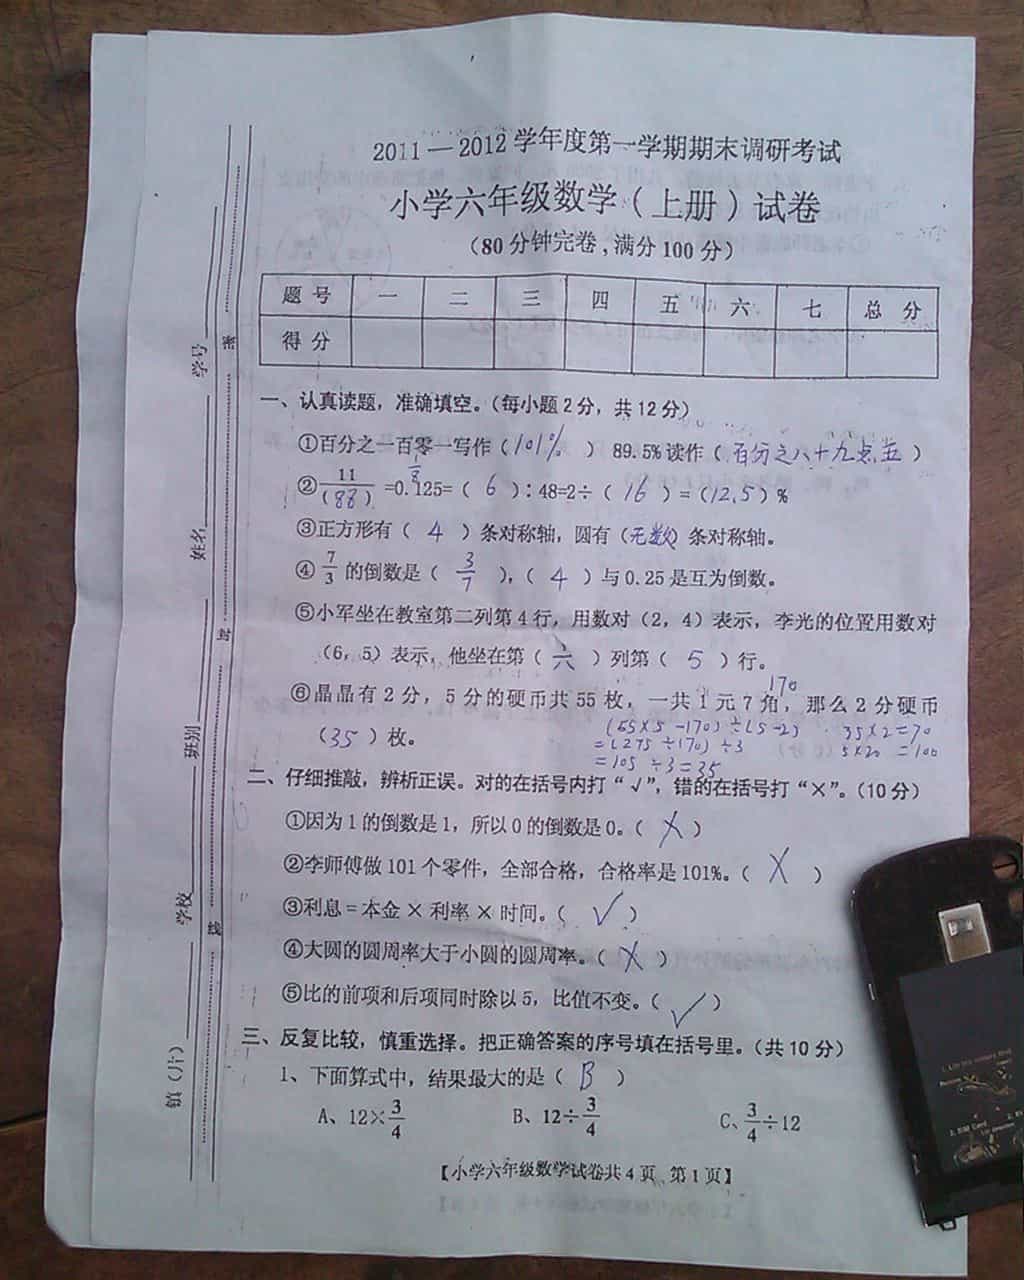 2011—2012学年度第一学期期末调研考试
小学六年级数学（上册）试卷
（80分钟完卷，满分100分）
题号 一 二 三 四 五 六 七 总分
得分
一、认真读题，准确填空。（每小题2分，共12分）
①百分之一百零一写作（101%） 89.5%读作（百分之八十九点五）
1/8
②11/(88)=0.125=（6）∶48=2÷（16）=（12.5）%
③正方形有（4）条对称轴，圆有（无数）条对称轴。
④7/3的倒数是（3/7），（4）与0.25是互为倒数。
⑤小军坐在教室第二列第4行，用数对（2，4）表示，李光的位置用数对
（6，5）表示，他坐在第（六）列第（5）行。
170
⑥晶晶有2分，5分的硬币共55枚，一共1元7角，那么2分硬币
（35）枚。
(55×5-170)÷(5-2) 35×2=70
=(275÷170)÷3 5×20=100
=105÷3=35
二、仔细推敲，辨析正误。对的在括号内打“√”，错的在括号打“×”。（10分）
①因为1的倒数是1，所以0的倒数是0。（×）
②李师傅做101个零件，全部合格，合格率是101%。（×）
③利息=本金×利率×时间。（√）
④大圆的圆周率大于小圆的圆周率。（×）
⑤比的前项和后项同时除以5，比值不变。（√）
三、反复比较，慎重选择。把正确答案的序号填在括号里。（共10分）
1、下面算式中，结果最大的是（B）
A、12×3/4 B、12÷3/4 C、3/4÷12
【小学六年级数学试卷共4页 第1页】
学号
姓名
班别
学校
密
封
线